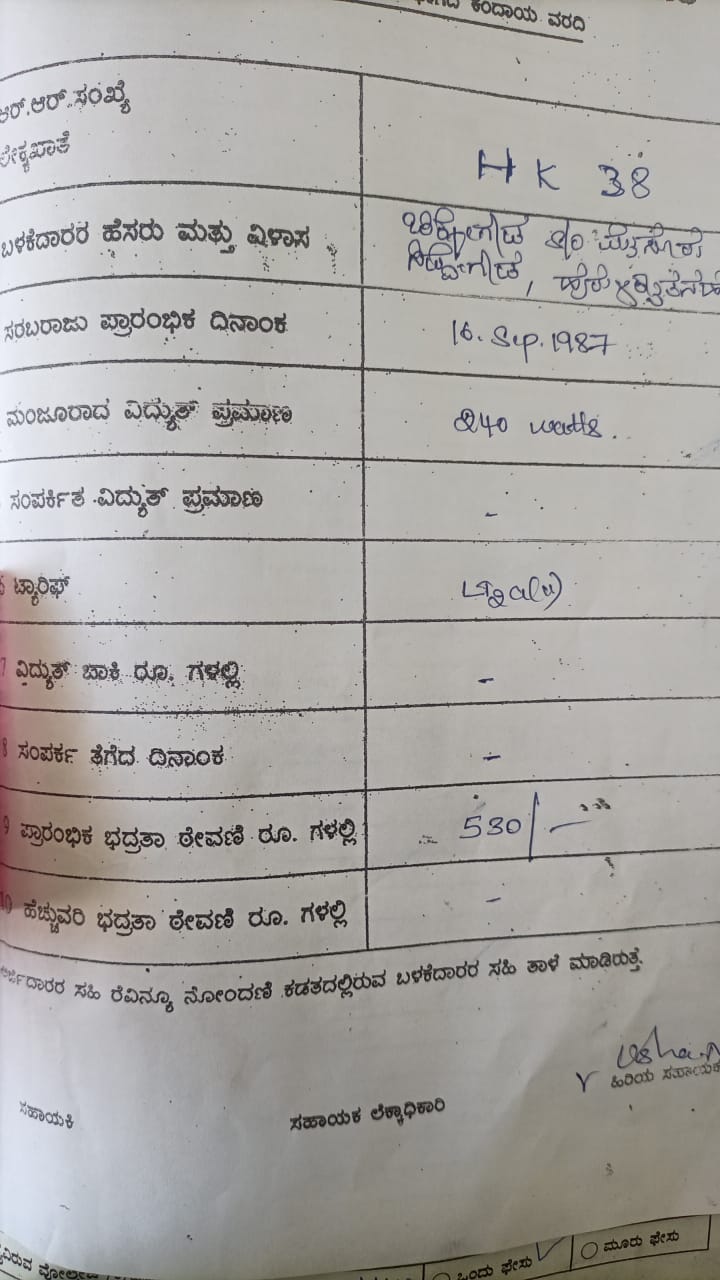 ಕಂದಾಯ ವರದಿ
ಆರ್.ಆರ್.ಸಂಖ್ಯೆ
HK 38
ಬಳಕೆದಾರರ ಹೆಸರು ಮತ್ತು ವಿಳಾಸ
ಸರಬರಾಜು ಪ್ರಾರಂಭಿಕ ದಿನಾಂಕ
16. Sep. 1987
ಮಂಜೂರಾದ ವಿದ್ಯುತ್ ಪ್ರಮಾಣ
240 watts.
ಸಂಪರ್ಕಿತ ವಿದ್ಯುತ್ ಪ್ರಮಾಣ
-
ಟ್ಯಾರಿಫ್
7 ವಿದ್ಯುತ್ ಬಾಕಿ ರೂ. ಗಳಲ್ಲಿ
-
8 ಸಂಪರ್ಕ ತೆಗೆದ ದಿನಾಂಕ
-
9 ಪ್ರಾರಂಭಿಕ ಭದ್ರತಾ ಠೇವಣಿ ರೂ. ಗಳಲ್ಲಿ
530/-
10 ಹೆಚ್ಚುವರಿ ಭದ್ರತಾ ಠೇವಣಿ ರೂ. ಗಳಲ್ಲಿ
-
ಅರ್ಜಿದಾರರ ಸಹಿ ರೆವಿನ್ಯೂ ನೋಂದಣಿ ಕಡತದಲ್ಲಿರುವ ಬಳಕೆದಾರರ ಸಹಿ ತಾಳೆ ಮಾಡಿರುತ್ತೆ.
Usha.N
ಸಹಾಯಕಿ
ಸಹಾಯಕ ಲೆಕ್ಕಾಧಿಕಾರಿ
ಹಿರಿಯ ಸಹಾಯಕ
ಒಂದು ಫೇಸು
ಮೂರು ಫೇಸು